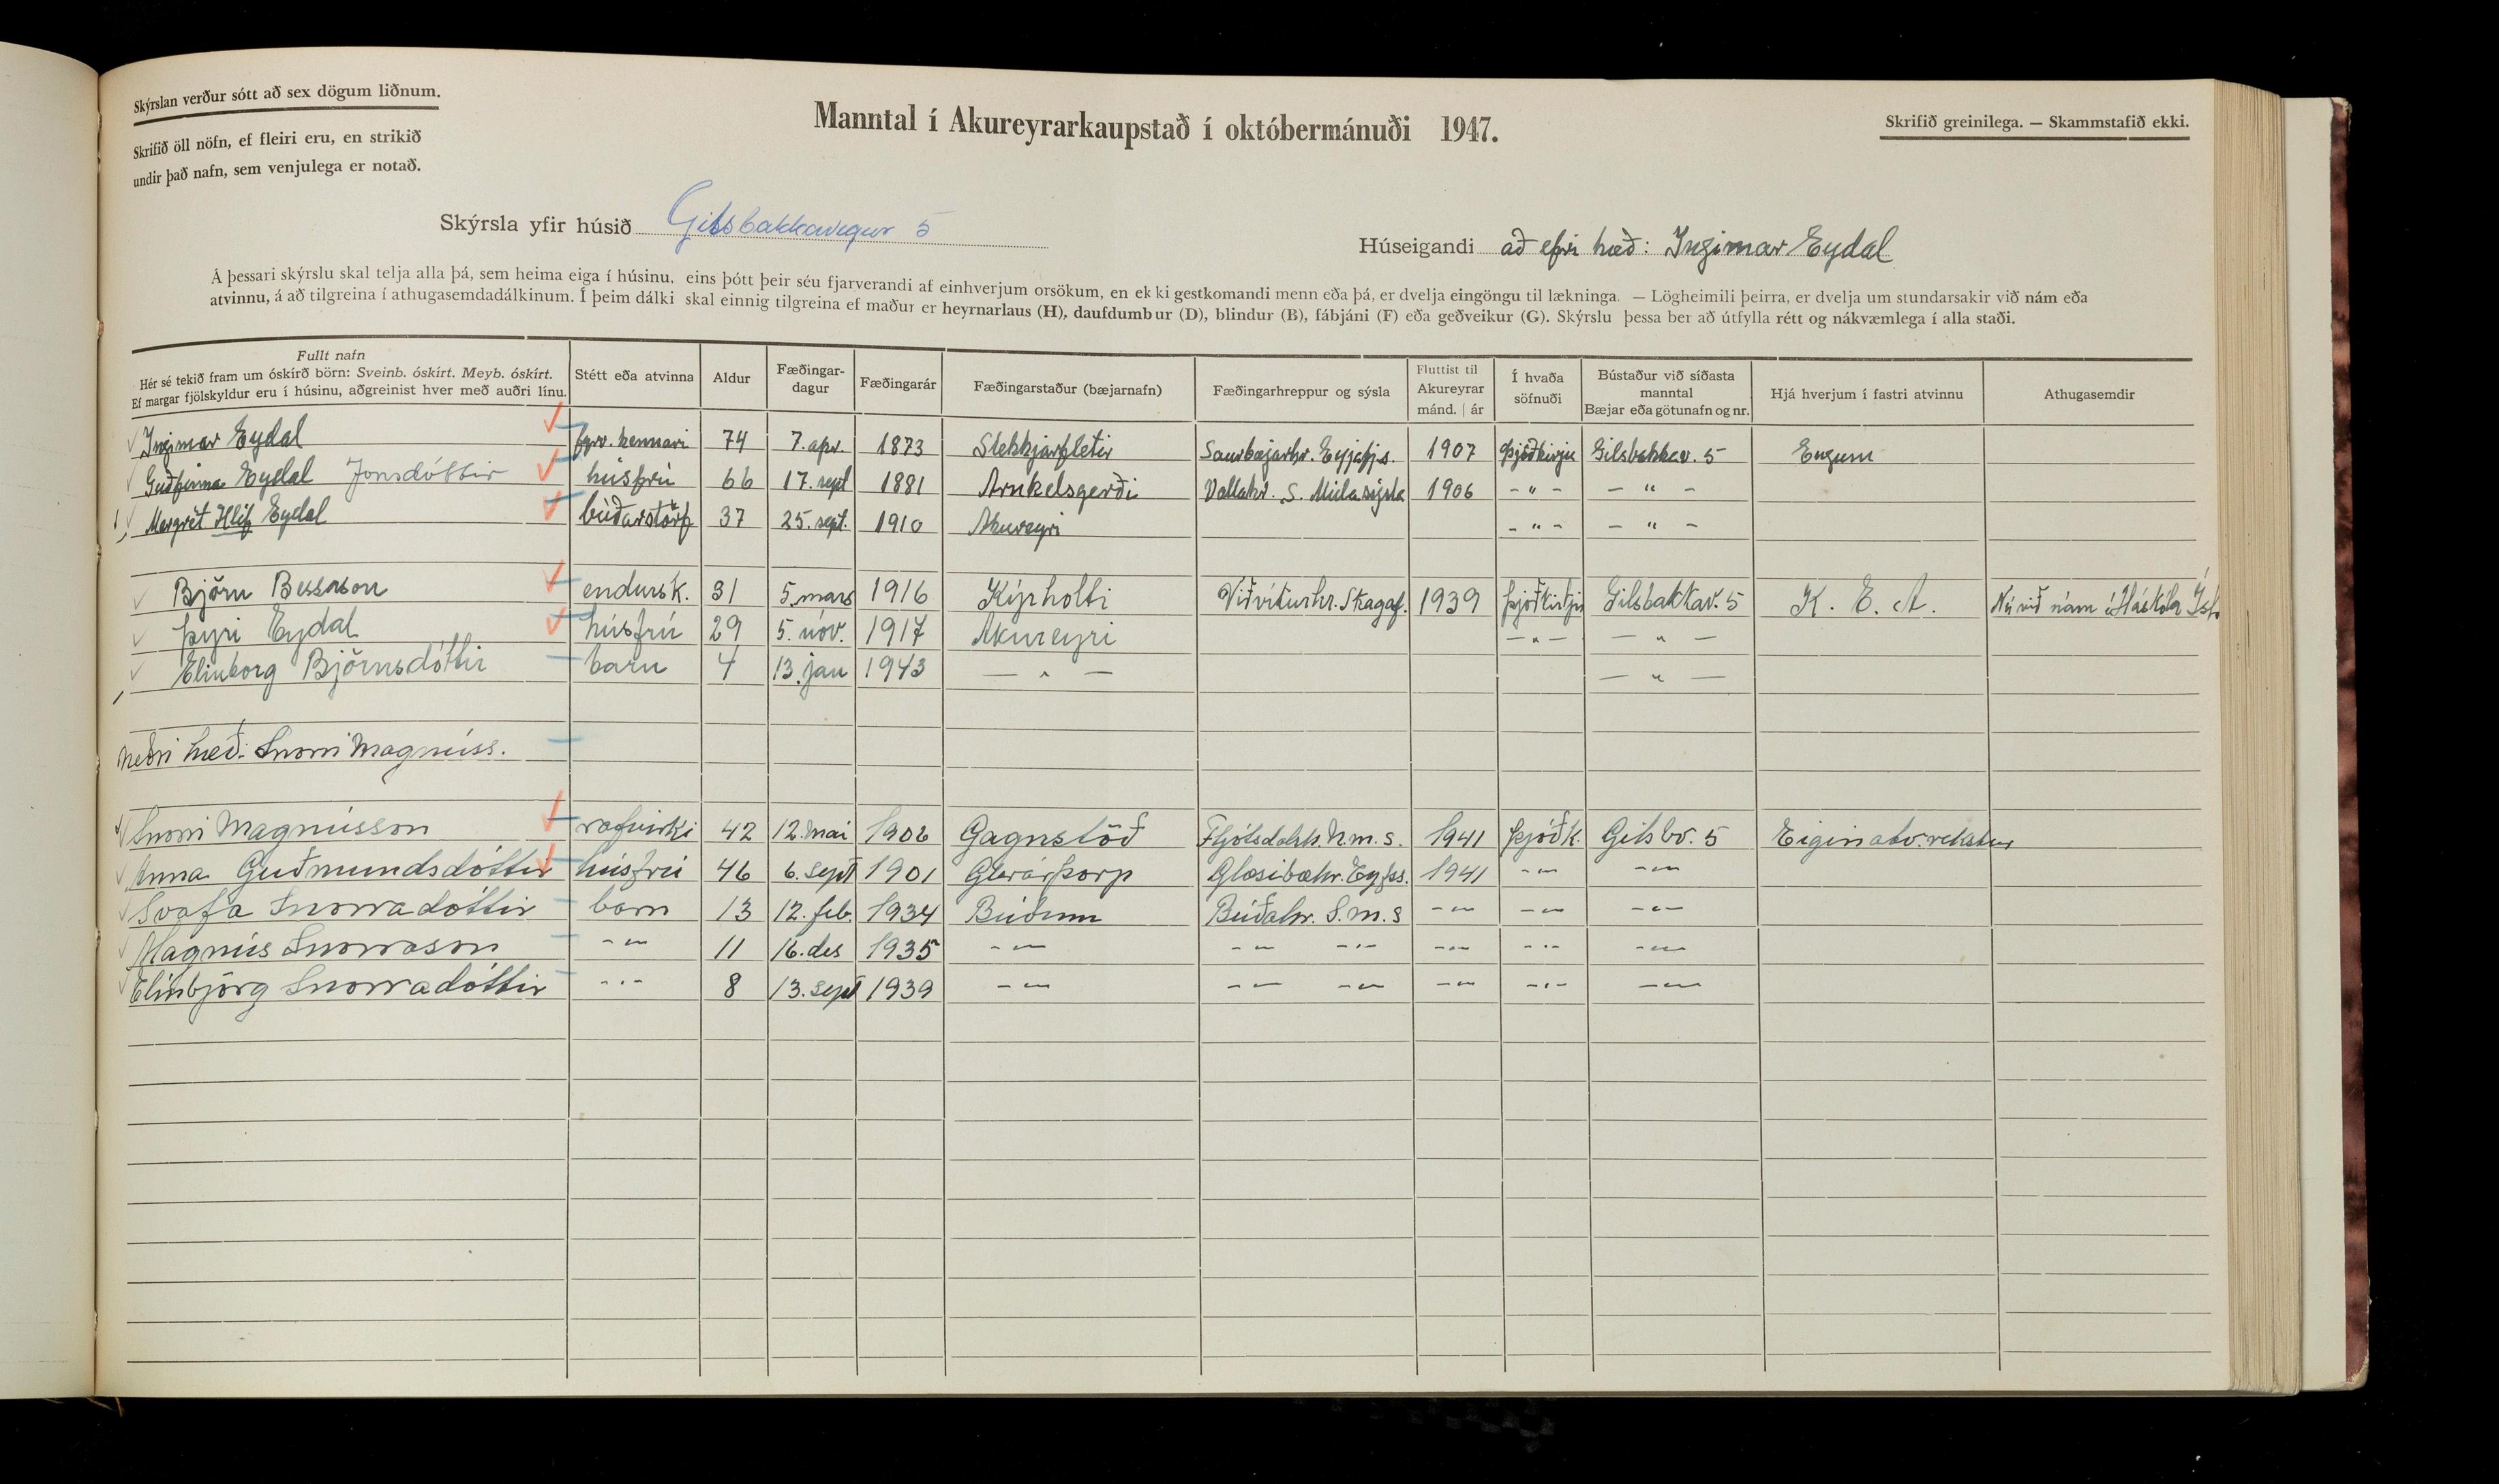 Skýrslan verður sótt að sex dögum liðnum.
Skrifið öll nöfn, ef fleiri eru, en strikið
undir það nafn, sem venjulega er notað.
Manntal í Akureyrarkaupstað í októbermánuði 1947.
Skrifið greinilega. — Skammstafið ekki.
Skýrsla yfir húsið Gilsbakkavegur 5
Húseigandi að efri hæð: Ingimar Eydal
Á þessari skýrslu skal telja alla þá, sem heima eiga í húsinu, eins þótt þeir séu fjarverandi af einhverjum orsökum, en ekki gestkomandi menn eða þá, er dvelja eingöngu til lækninga. — Lögheimili þeirra, er dvelja um stundarsakir við nám eða
atvinnu, á að tilgreina í athugasemdadálkinum. Í þeim dálki skal einnig tilgreina ef maður er heyrnarlaus (H), daufdumbur (D), blindur (B), fábjáni (F) eða geðveikur (G). Skýrslu þessa ber að útfylla rétt og nákvæmlega í alla staði.
Fullt nafn
Hér sé tekið fram um óskírð börn: Sveinb. óskírt. Meyb. óskírt.
Ef margar fjölskyldur eru í húsinu, aðgreinist hver með auðri línu.
Stétt eða atvinna
Aldur
Fæðingar-
dagur
Fæðingarár
Fæðingarstaður (bæjarnafn)
Fæðingarhreppur og sýsla
Fluttist til
Akureyrar
mánd. | ár
Í hvaða
söfnuði
Bústaður við síðasta
manntal
Bæjar eða götunafn og nr.
Hjá hverjum í fastri atvinnu
Athugasemdir
Ingimar Eydal fyrv. kennari 74 7. apr. 1873 Stekkjarfletir Saurbæjarhr. Eyjafj.s. 1907 Þjóðkirkju Gilsbakkav. 5 Engum
Guðfinna Eydal Jónsdóttir húsfrú 66 17. sept 1881 Arnkelsgerði Vallahr. S. Múlasýsla 1906 - " - - " -
Margrét Hlíf Eydal búðarstörf 37 25. sept. 1910 Akureyri - " - - " -
Björn Bessason endursk. 31 5. mars 1916 Kýrholti Viðvíkurhr. Skagaf. 1939 Þjóðkirkju Gilsbakkav. 5 K. E. A. Nú við nám í Háskóla Ísl.
Þyri Eydal húsfrú 29 5. nóv. 1917 Akureyri - " - - " -
Elinborg Björnsdóttir barn 4 13. jan 1943 - " - - " -
Neðri hæð: Snorri Magnúss.
Snorri Magnússon rafvirki 42 12. maí Gagnstöð N.m.s. 1941 Þjóðk. Gilsbv. 5 Eigin atv.rekstur
Anna Guðmundsdóttir húsfrú 46 6. sept 1901 Glerárþorp Glæsibæhr. 1941 - " - - " -
Svafa Snorradóttir barn 13 12. feb. 1934 Búðum Búðahr. S.m.s - " - - " - - " -
Magnús Snorrason - " - 11 16. des 1935 - " - - " - - " - - " - - " - - " -
Elínbjörg Snorradóttir - " - 8 13. sept 1939 - " - - " - - " - - " - - " - - " -